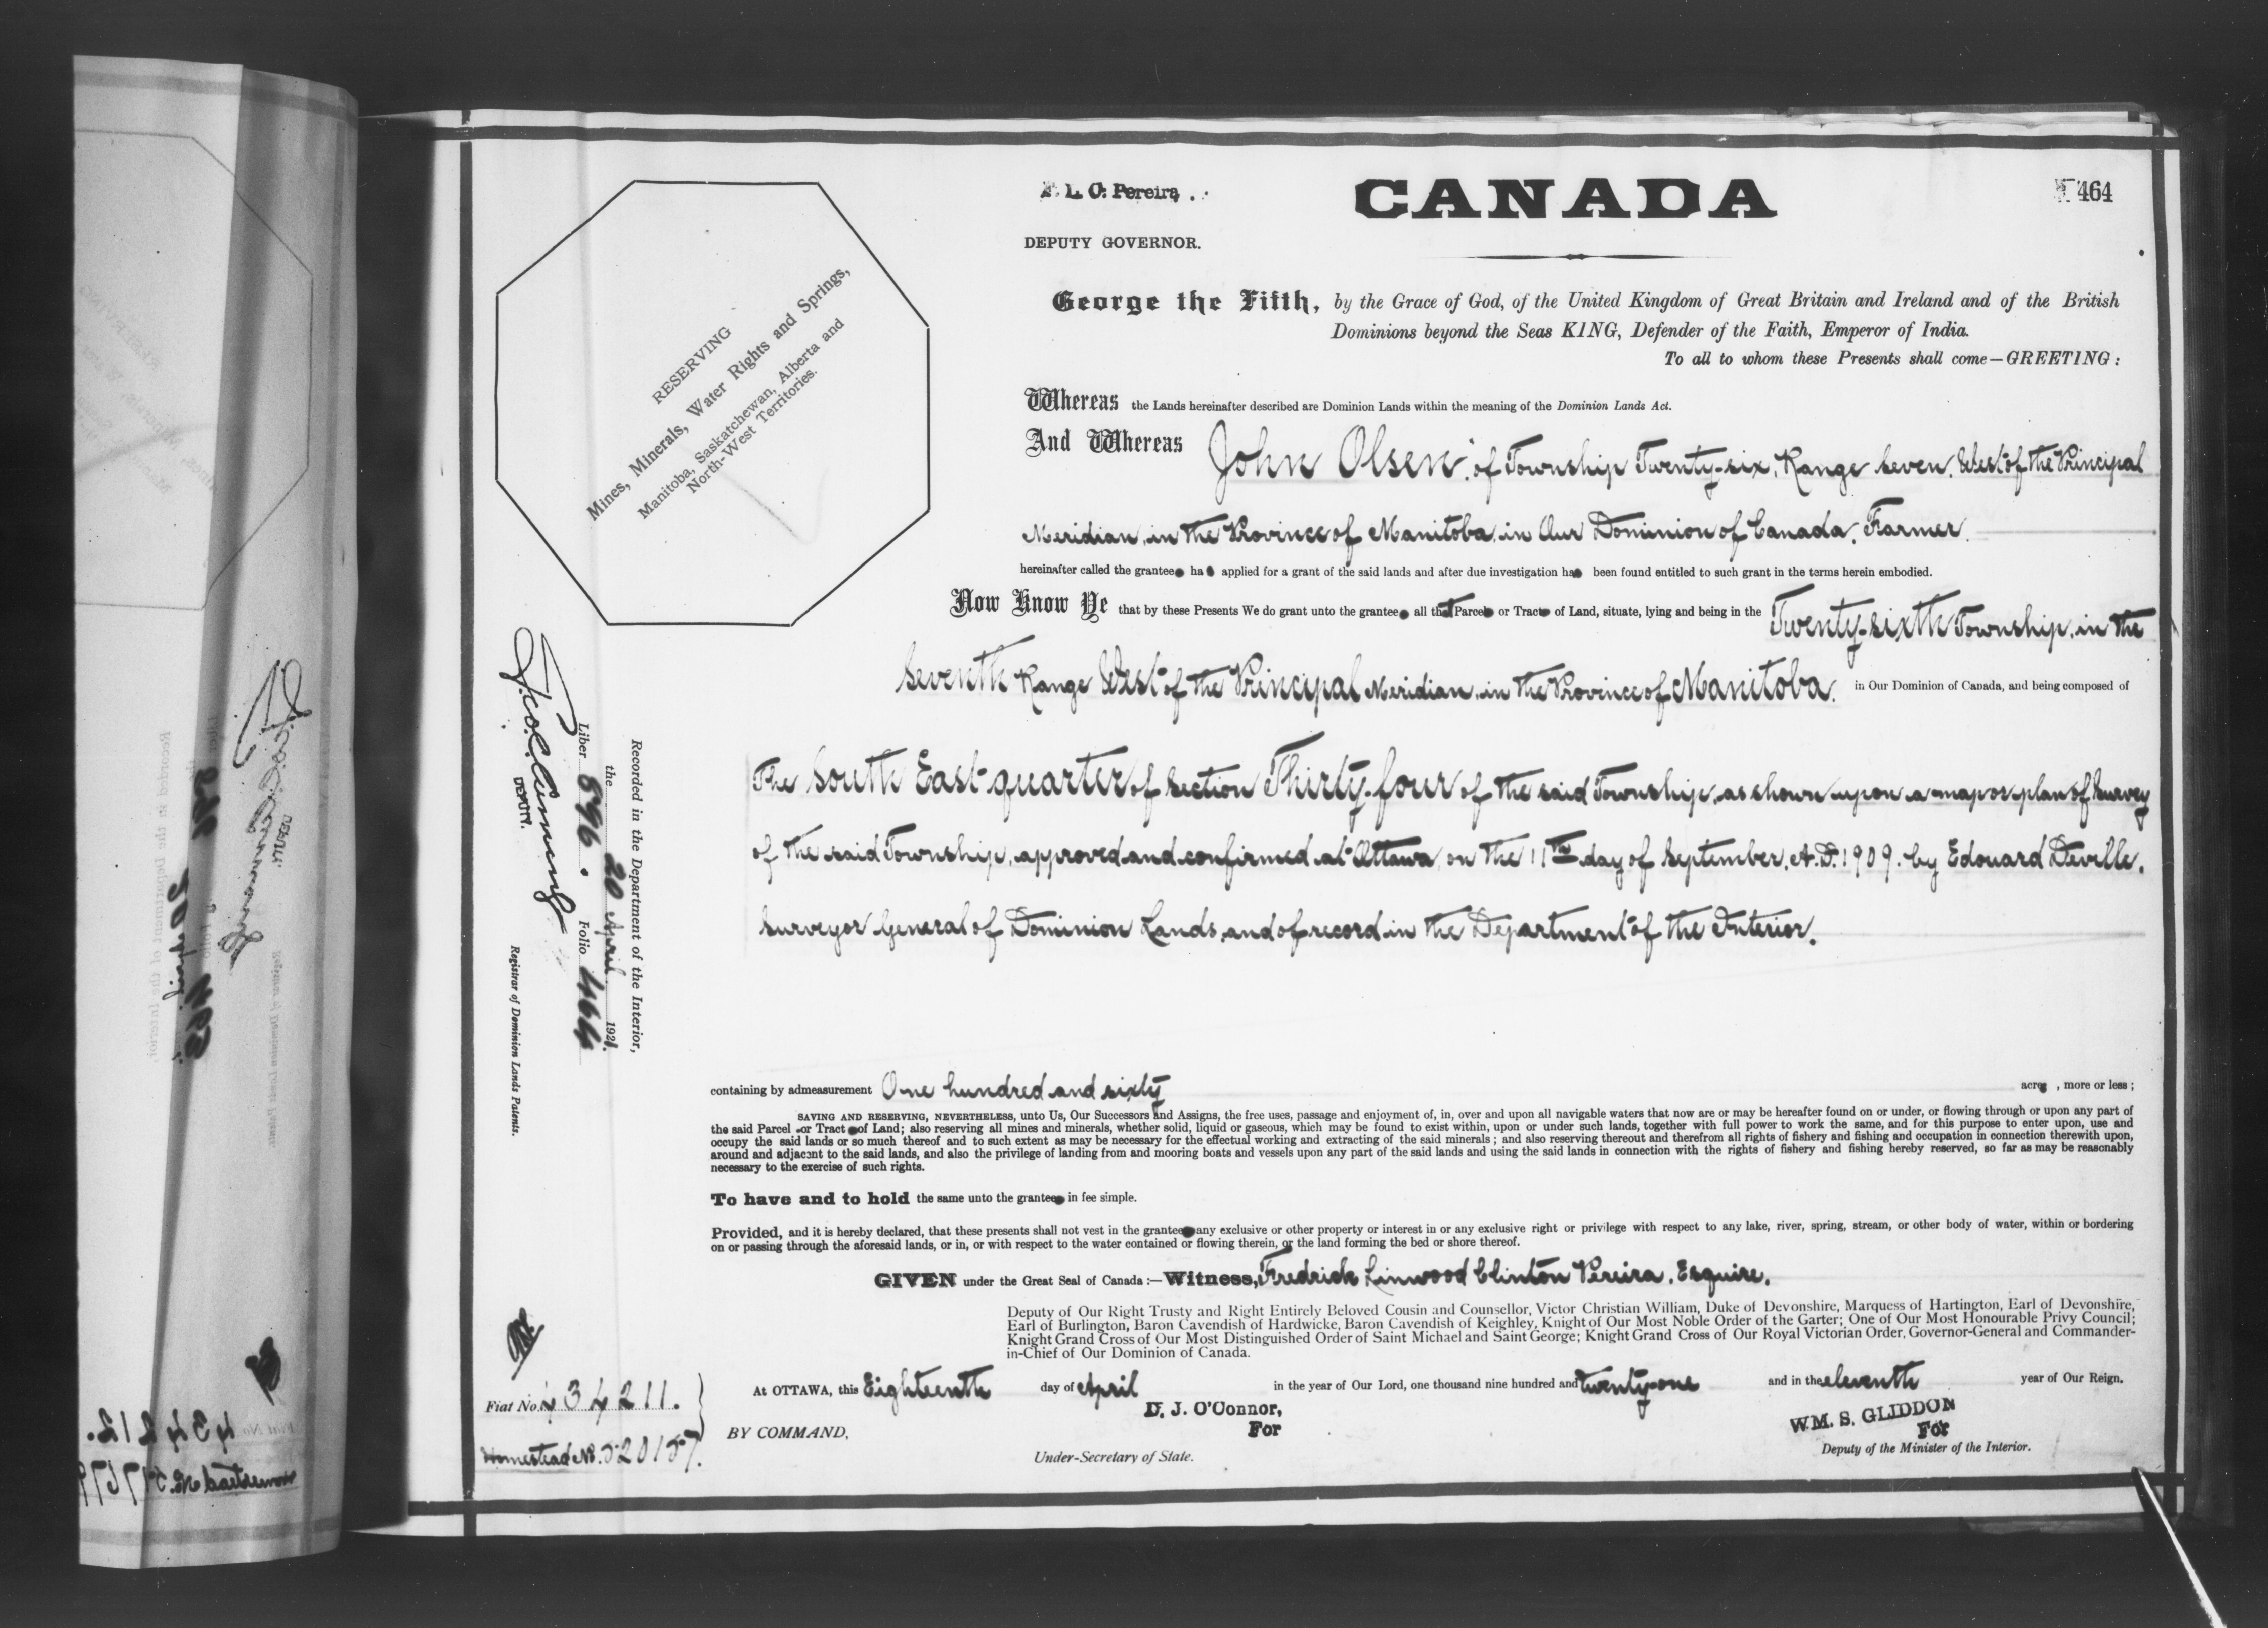 F. L. C. Pereira.
CANADA
464
DEPUTY GOVERNOR.
George the Fifth, by the Grace of God, of the United Kingdom of Great Britain and Ireland and of the British
Dominions beyond the Seas KING, Defender of the Faith, Emperor of India.
To all to whom these Presents shall come—GREETING:
RESERVING
Mines, Minerals, Water Rights and Springs,
Manitoba, Saskatchewan, Alberta and
North-West Territories.
Whereas the Lands hereinafter described are Dominion Lands within the meaning of the Dominion Lands Act.
And Whereas John Olsen, of Township Twenty-six, Range Seven, West of the Principal
Meridian, in the Province of Manitoba, in Our Dominion of Canada, Farmer.
hereinafter called the grantee ha applied for a grant of the said lands and after due investigation ha been found entitled to such grant in the terms herein embodied.
Now Know Ye that by these Presents We do grant unto the grantee all that Parcel or Tract of Land, situate, lying and being in the Twenty-sixth Township, in the
Seventh Range West of the Principal Meridian, in the Province of Manitoba. in Our Dominion of Canada, and being composed of
The South East quarter of Section Thirty-four of the said Township, as shown upon a map or plan of Survey
of the said Township, approved and confirmed at Ottawa, on the 11th day of September, A.D. 1909. by Edouard Deville,
Surveyor General of Dominion Lands, and of record in the Department of the Interior.
Recorded in the Department of the Interior,
the 20 April 1921.
Liber 896 . Folio 464
DEPUTY.
Registrar of Dominion Lands Patents.
containing by admeasurement One hundred and sixty acres, more or less;
SAVING AND RESERVING, NEVERTHELESS, unto Us, Our Successors and Assigns, the free uses, passage and enjoyment of, in, over and upon all navigable waters that now are or may be hereafter found on or under, or flowing through or upon any part of
the said Parcel or Tract of Land; also reserving all mines and minerals, whether solid, liquid or gaseous, which may be found to exist within, upon or under such lands, together with full power to work the same, and for this purpose to enter upon, use and
occupy the said lands or so much thereof and to such extent as may be necessary for the effectual working and extracting of the said minerals; and also reserving thereout and therefrom all rights of fishery and fishing and occupation in connection therewith upon,
around and adjacent to the said lands, and also the privilege of landing from and mooring boats and vessels upon any part of the said lands and using the said lands in connection with the rights of fishery and fishing hereby reserved, so far as may be reasonably
necessary to the exercise of such rights.
To have and to hold the same unto the grantee in fee simple.
Provided, and it is hereby declared, that these presents shall not vest in the grantee any exclusive or other property or interest in or any exclusive right or privilege with respect to any lake, river, spring, stream, or other body of water, within or bordering
on or passing through the aforesaid lands, or in, or with respect to the water contained or flowing therein, or the land forming the bed or shore thereof.
GIVEN under the Great Seal of Canada:—Witness, Fredrick Linwood Clinton Pereira, Esquire,
Deputy of Our Right Trusty and Right Entirely Beloved Cousin and Counsellor, Victor Christian William, Duke of Devonshire, Marquess of Hartington, Earl of Devonshire,
Earl of Burlington, Baron Cavendish of Hardwicke, Baron Cavendish of Keighley, Knight of Our Most Noble Order of the Garter; One of Our Most Honourable Privy Council;
Knight Grand Cross of Our Most Distinguished Order of Saint Michael and Saint George; Knight Grand Cross of Our Royal Victorian Order, Governor-General and Commander-
in-Chief of Our Dominion of Canada.
At OTTAWA, this Eighteenth day of April in the year of Our Lord, one thousand nine hundred and twenty-one and in the eleventh year of Our Reign.
Fiat No. 434211.
BY COMMAND,
D. J. O'Connor,
For
Under-Secretary of State.
WM. S. GLIDDON
For
Deputy of the Minister of the Interior.
Homestead No. 520157.